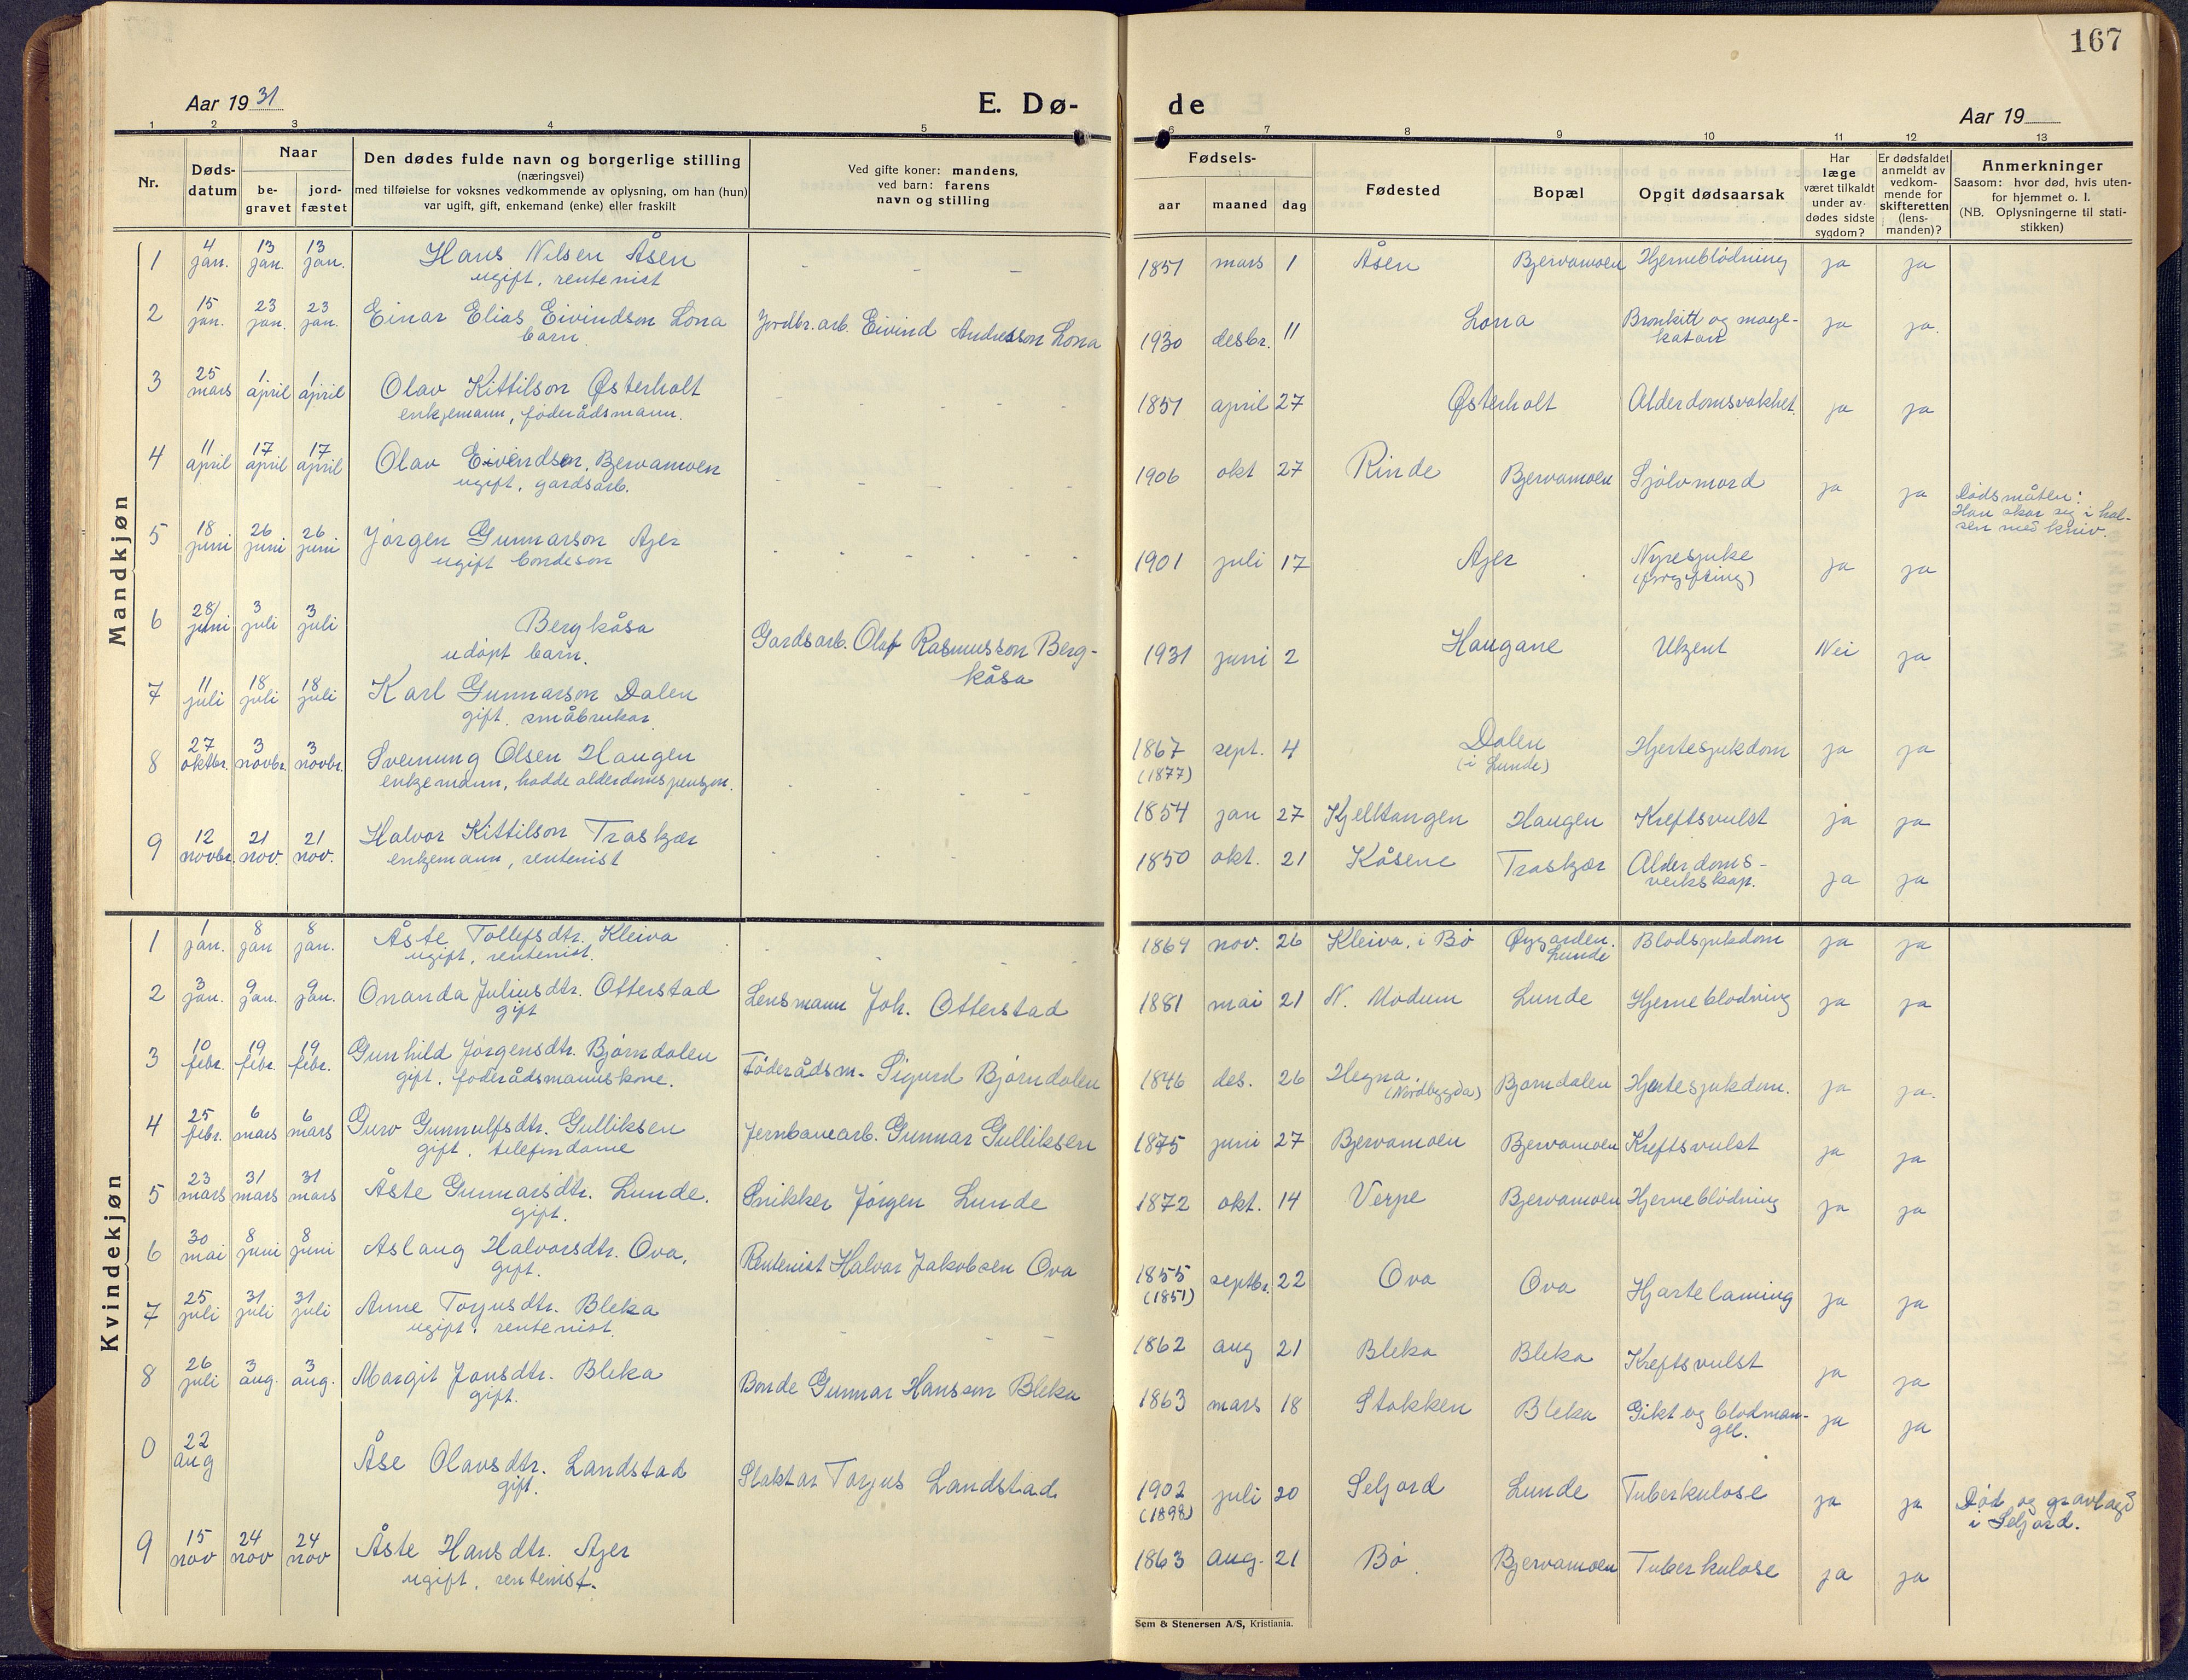 167
Aar 1931
E. Dø-
de
Aar 19
1 2 3 4 5 6 7 8 9 10 11 12 13
Nr.
Døds-
datum
Naar
be-
gravet
jord-
fæstet
Den dødes fulde navn og borgerlige stilling
(næringsvei)
med tilføielse for voksnes vedkommende av oplysning, om han (hun)
var ugift, gift, enkemand (enke) eller fraskilt
Ved gifte koner: mandens,
ved barn: farens
navn og stilling
Fødsels-
aar maaned dag
Fødested
Bopæl
Opgit dødsaarsak
Har
læge
været tilkaldt
under av-
dødes sidste
sygdom?
Er dødsfaldet
anmeldt av
vedkom-
mende for
skifteretten
(lens-
manden)?
Anmerkninger
Saasom: hvor død, hvis uten-
for hjemmet o. l.
(NB. Oplysningerne til stati-
stikken)
Mandkjøn
1 4 jan. 13 jan. 13 jan. Hans Nilsen Åsen - - - 1851 mars 1 Åsen Bjervamoen Hjerneblödning ja ja
ugift, rentenist
2 15 jan. 23 jan. 23 jan. Einar Elias Eivindson Lona Jordbr.arb. Eivind Andresson Lona 1930 desbr. 11 Lona Bronkitt og mage- ja ja.
barn katarr
3 25 mars 1 april 1 april Olav Kittilson Østerholt - - - - - 1851 april 27 Østerholt Alderdomsvakhet. ja ja
enkjemann, föderådsmann.
4 11 april 17 april 17 april Olav Eivendsen, Bjervamoen - - - - - 1906 okt 27 Rinde Bjervamoen Sjölvmord ja ja Dödsmåten:
ugift, gardsarb. Han skar seg i hal-
sen med kniv.
5 18 juni 26 juni 26 juni Jörgen Gunnarson Ajer - - - - - 1901 juli 17 Ajer Nyresjuke ja ja
ugift bondeson (forgifting)
6 28/ juni 3 juli 3 juli Bergkåsa Gardsarb. Olaf Rasmusson Berg- 1931 juni 2 Haugane Ukjent Nei ja
udöpt barn. kåsa
7 11 juli 18 juli 18 juli Karl Gunnarson Dalen 1867 sept. 4 Dalen Hjertesjukdom ja ja
gift. småbrukar (1877) (i Lunde)
8 27 oktbr. 3 novbr. 3 novbr. Sveinung Olsen Haugen - - - - 1854 jan 27 Kjelltangen Haugen Kreftsvulst ja ja
enkjemann, hadde alderdomspensjon.
9 12 novbr. 21 nov. 21 nov. Halvor Kittilson Traskjær - - - - 1850 okt. 21 Kåsene Traskjær Alderdoms- ja ja
enkjemann, rentenist veikskap.
Kvindekjøn
1 1 jan. 8 jan 8 jan. Åste Tollefsdtr. Kleiva - - - - 1864 nov. 26 Kleiva. i Bö Øygarden. Blodsjukdom ja ja
ugift, rentenist. Lunde
2 3 jan. 9 jan. 9 jan. Onanda Juliusdtr. Otterstad Lensmann Joh. Otterstad 1881 mai 21 N. Modum Lunde Hjerneblodning ja ja
gift
3 10 febr. 19 febr. 19 febr. Gunhild Jörgensdtr. Björndalen Föderådsm. Sigurd Björndalen 1846 des. 26 Hegna. Bjorndalen Hjertesjukdom. ja ja.
gift. föderådsmannskone. (Nordbygda)
4 25 febr. 6 mars 6 mars Guro Gunnulfsdtr. Gulliksen Jernbanearb. Gunnar Gulliksen 1875 juni 27 Bjervamoen Bjervamoen Kreftsvulst ja ja
gift. telefondame
5 23 mars 31 mars 31 mars Åste Gunnarsdtr. Lunde. Snikker Jörgen Lunde 1872 okt. 14 Verpe Bjervamoen Hjerneblödning ja ja
gift.
6 30 mai 8 juni 8 juni Aslaug Halvorsdtr. Ova. Rentenist Halvor Jakobsen Ova 1855 septbr. 22 Ova Ova Hjartelaming ja ja
gift. (1851)
7 25 juli 31 juli 31 juli Anne Torjusdtr. Bleka - - - - 1862 aug 21 Bleka Bleka Kreftsvulst ja ja
ugift, rentenist.
8 26 juli 3 aug. 3 aug. Margit Jonsdtr. Bleka Bonde Gunnar Hansson Bleka 1863 mars 18 Stokken Bleka Gikt og blodman- ja ja
gift. gel.
0 22 aug Åse Olavsdtr. Landstad Slaktar Torjus Landstad 1902 juli 20 Seljord Lunde Tuberkulose ja ja Död og gravlagd
gift. (1898) i Seljord.
9 15 nov 24 nov 24 nov Åste Hansdtr. Ajer 1863 aug. 21 Bö. Bjervamoen Tuberkulose ja ja
ugift. rentenist.
Sem & Stenersen A/S, Kristiania.